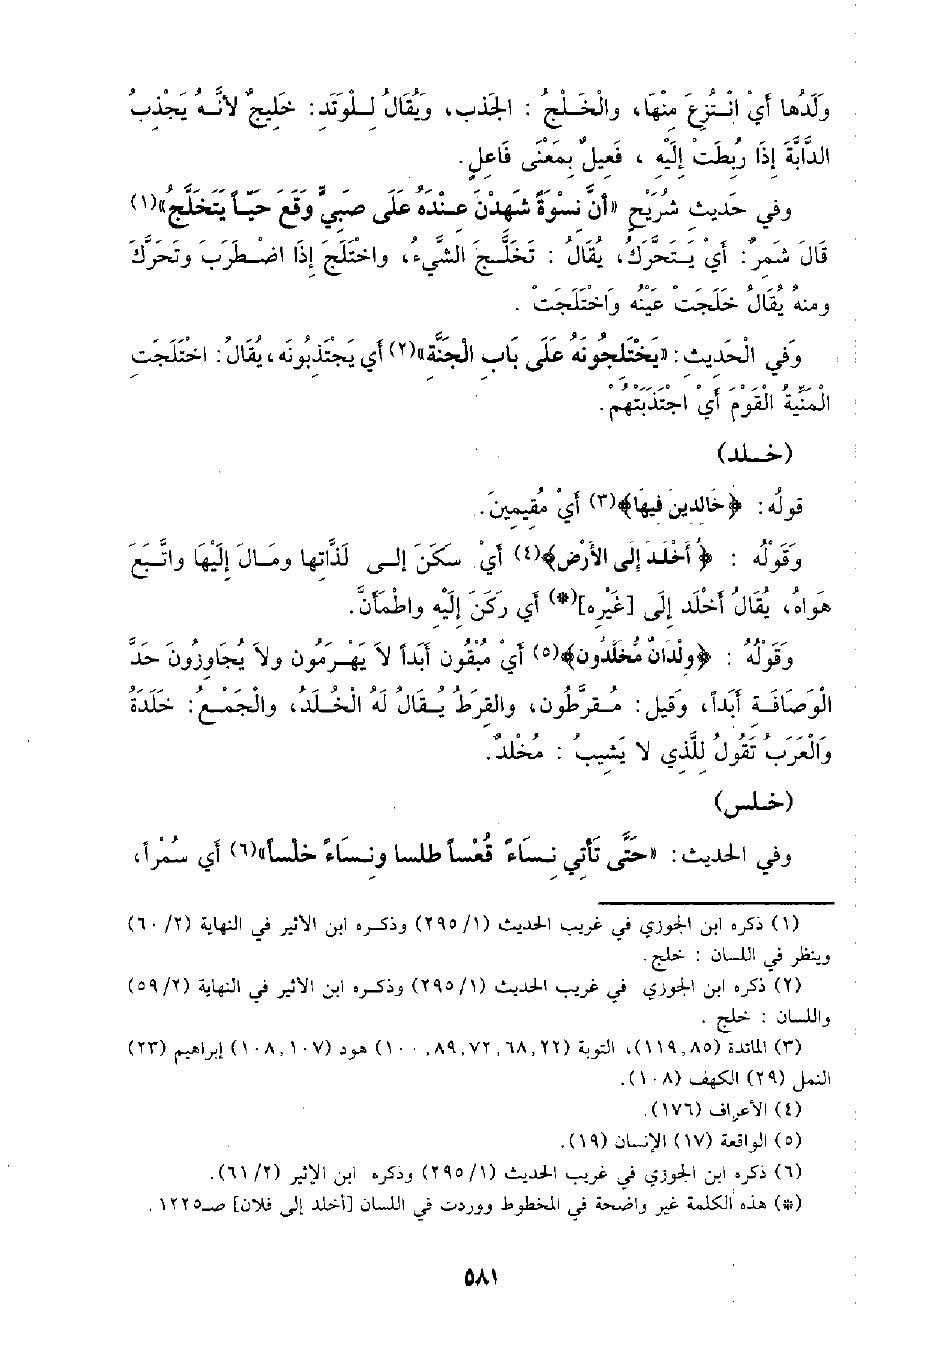 وَلَدُها أَيْ انْتُزِعَ مِنْهَا، والْخَلْجُ : الجَذب، وَيُقَالُ لِلْوَتَدِ: خَلِيجٌ لأنَّهُ يَجْذِبُ
الدَّابَّةَ إذَا رُبِطَتْ إلَيْهِ ، فَعِيلٌ بِمَعْنَى فَاعِلٍ.
وفي حَدِيث شُرَيْحٍ «أنَّ نسْوَةً شَهِدْنَ عنْدَهُ عَلَى صَبِيٍّ وَقَعَ حَيّاً يَتَخَلَّجُ»(١)
قَالَ شَمِرٌ: أَيْ يَتَحَرَّكُ، يُقَالُ : تَخَلَّجَ الشَّيْءُ، واخْتَلَجَ إذَا اضْطَرَبَ وتَحَرَّكَ
ومنهُ يُقَالُ خَلَجَتْ عَيْنُه وَاخْتَلَجَتْ .
وَفي الْحَدِيث: «يَخْتَلِجُونَهُ عَلَى بَابِ الجَنَّة»(٢) أَي يَجْتَذِبُونَه، يُقَالُ: اخْتَلَجَت
الْمَنِيَّةُ القَوْمَ أَيْ اجْتَذَبَتْهُمْ.
(خلد)
قولُه: ﴿خَالدينَ فيهَا﴾(٣) أَيْ مُقِيمِينَ.
وَقَوْلُه : ﴿أَخْلَدَ إلَى الأَرْض﴾(٤) أَيْ سَكَنَ إلى لَذَّاتِها ومَالَ إلَيْهَا واتَّبَعَ
هَواهُ، يُقَالُ أَخْلَد إلَى [غَيْرِه](*) أَي رَكَنَ إلَيْهِ واطْمَأَنَّ.
وَقَوْلُهُ : ﴿وِلْدَانٌ مُخَلَّدُون﴾(٥) أَيْ مُبْقُون أَبَداً لاَ يَهْرَمُون ولاَ يُجَاوِزُونَ حَدَّ
الْوَصَافَةِ أَبَداً، وَقيل: مُقَرَّطُون، والقرَطُ يُقَالُ لَهُ الْخُلَد، والْجَمْعُ: خَلَدَةُ
وَالْعَرَبُ تَقُولُ لِلَّذِي لا يَشِيبُ : مُخْلَدٌ.
(خلس)
وفي الحَديث: «حَتَّى تَأْتي نِسَاءً قُعْساً طلسا ونِسَاءً خلْساً»(٦) أَي سُمْراً،
(١) ذكره ابن الجوزي في غريب الحديث (٢٩٥/١) وذكره ابن الأثير في النهاية (٦٠/٢)
وينظر في اللسان : خلج.
(٢) ذكره ابن الجوزي في غريب الحديث (٢٩٥/١) وذكره ابن الأثير في النهاية (٥٩/٢)
واللسان : خلج .
(٣) المائدة (١١٩,٨٥)، التوبة (١٠٠,٨٩,٧٢,٦٨,٢٢) هود (١٠٨,١٠٧) إبراهيم (٢٣)
النمل (٢٩) الكهف (١٠٨).
(٤) الأعراف (١٧٦).
(٥) الواقعة (١٧) الإنسان (١٩).
(٦) ذكره ابن الجوزي في غريب الحديث (٢٩٥/١) وذكره ابن الأثير (٦١/٢).
(*) هذه الكلمة غير واضحة في المخطوط ووردت في اللسان [أخلد إلى فلان] صـ١٢٢٥ .
٥٨١